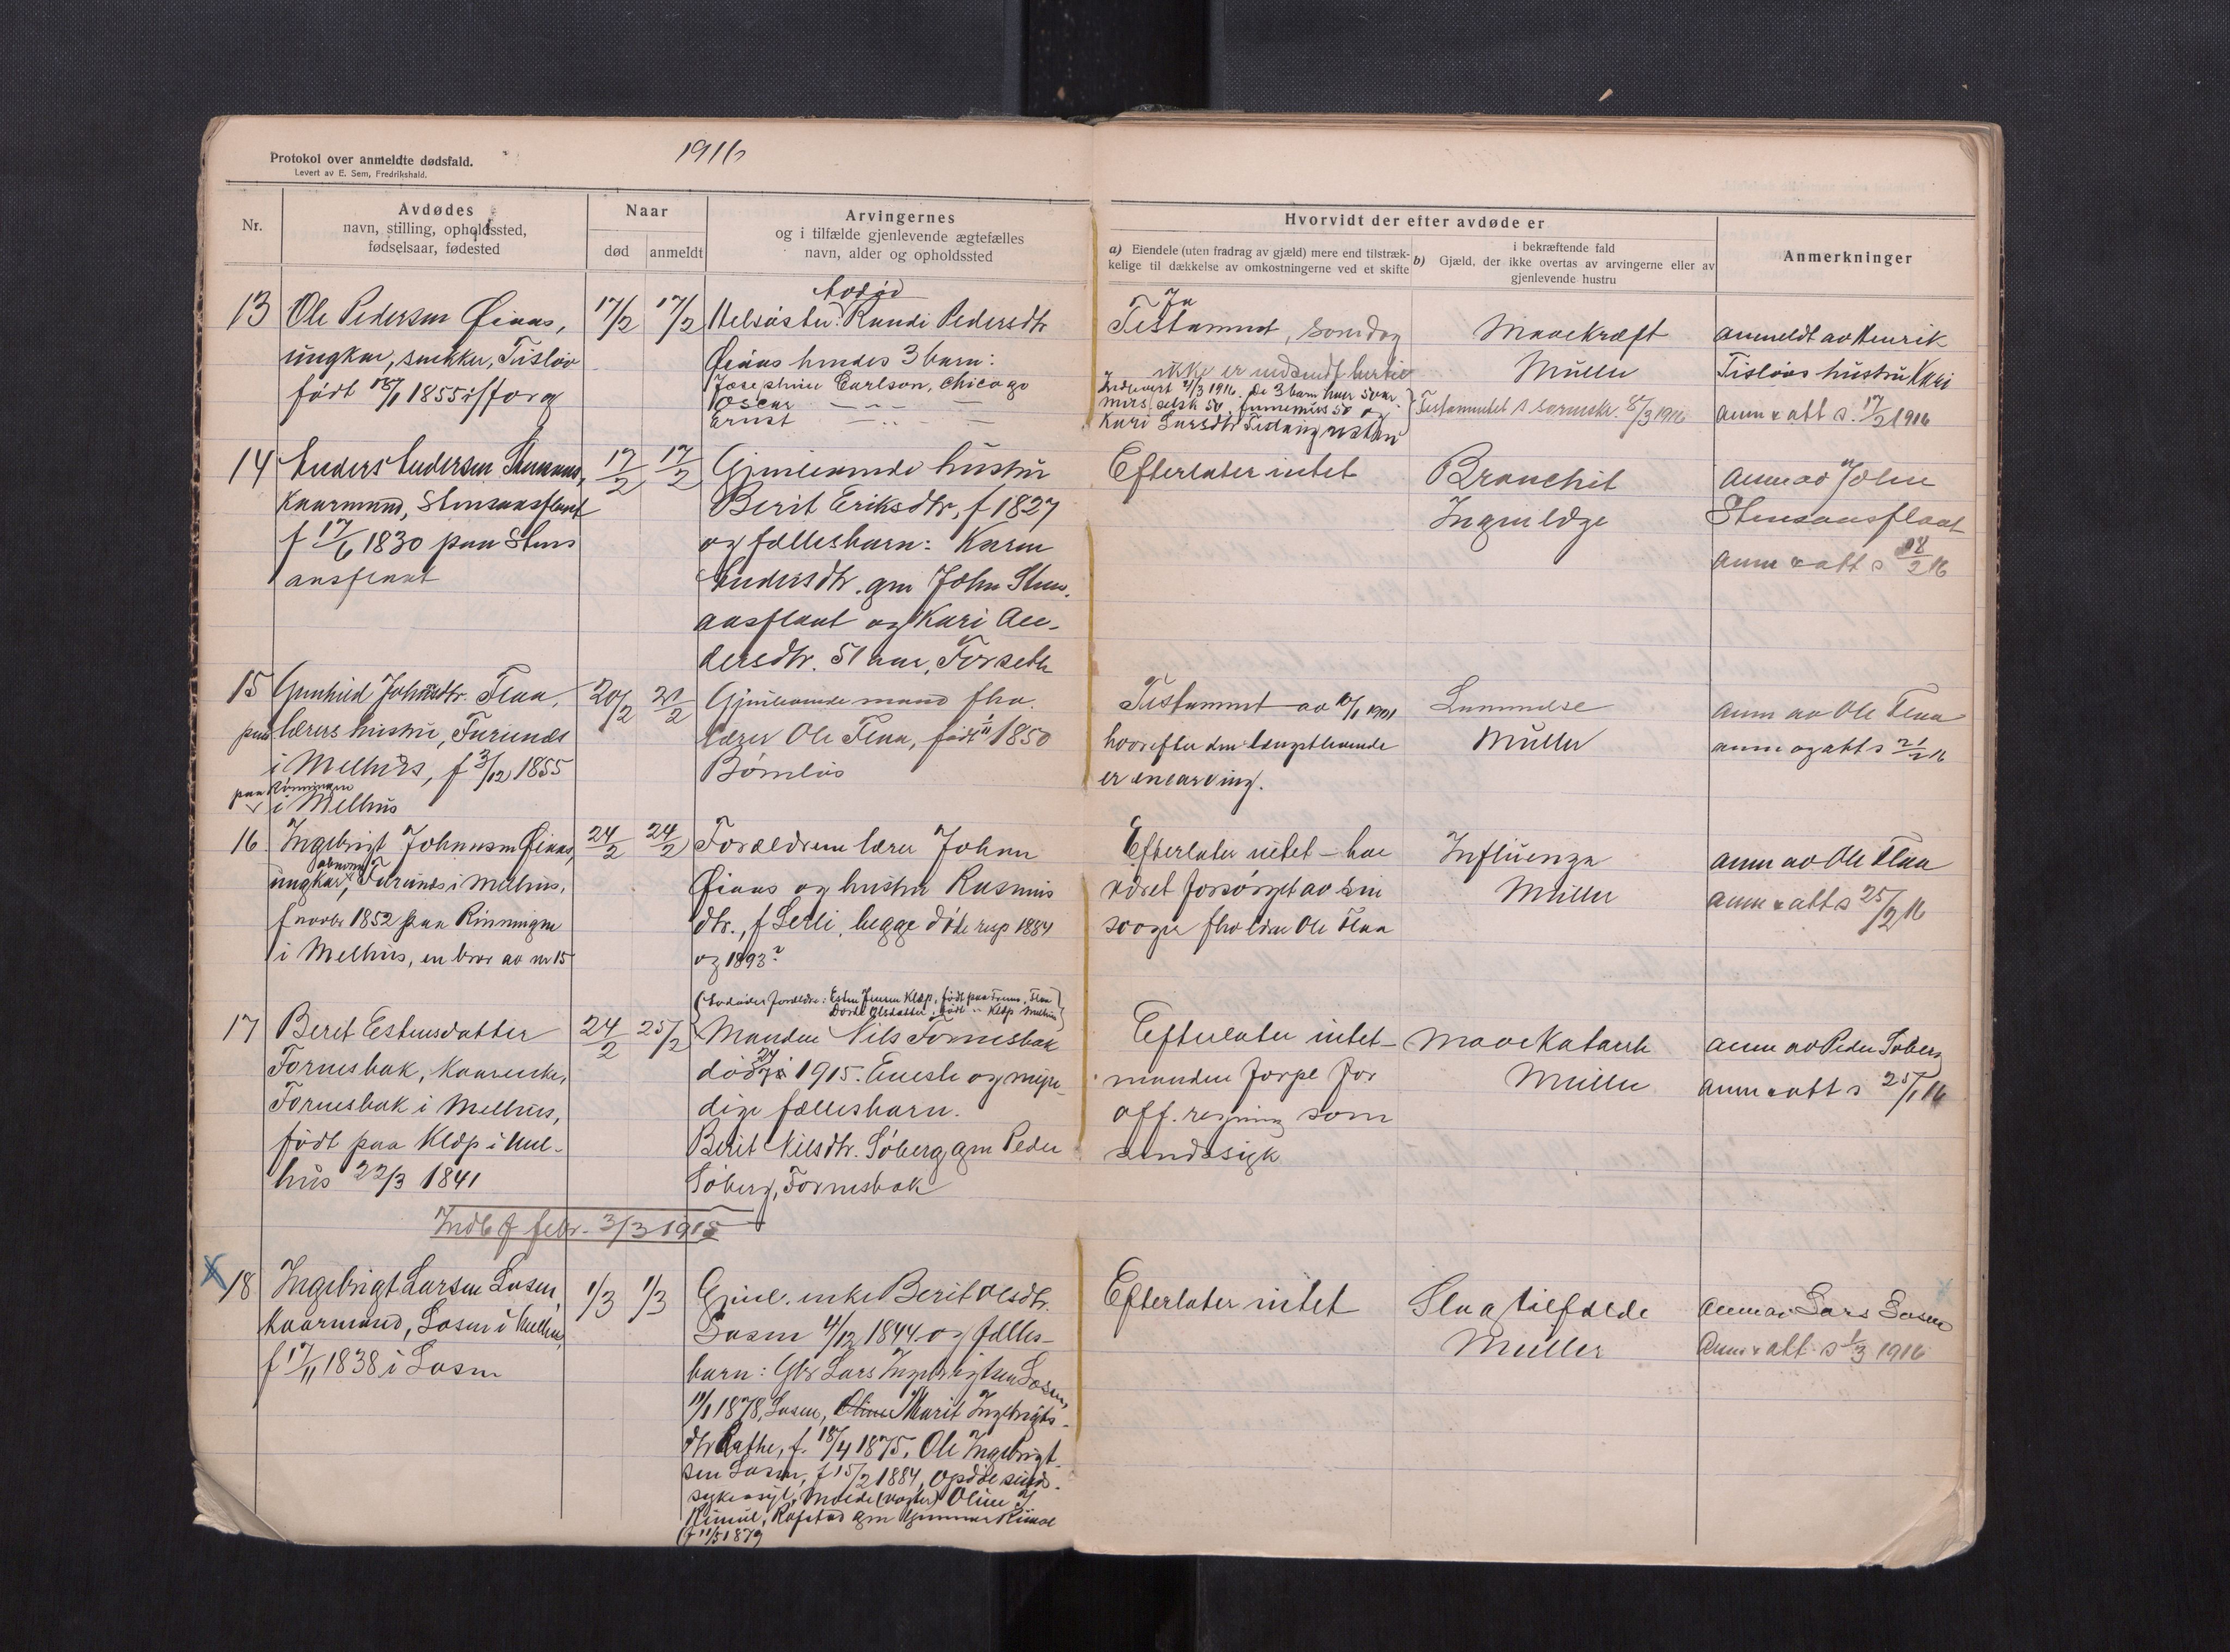 Protokol over anmeldte dødsfald.
Levert av E. Sem, Fredrikshald.
1916
Nr.
Avdødes
navn, stilling, opholdssted,
fødselsaar, fødested
Naar
død
anmeldt
Arvingernes
og i tilfælde gjenlevende ægtefælles
navn, alder og opholdssted
Hvorvidt der efter avdøde er
a) Eiendele (uten fradrag av gjæld) mere end tilstræk-
kelige til dækkelse av omkostningerne ved et skifte
i bekræftende fald
b) Gjæld, der ikke overtas av arvingerne eller av
gjenlevende hustru
Anmerkninger
13
Ole Pedersen Øiaas,
ungkar, snekker, Tisløv
født 18/1 1855 i
17/2
17/2
Avdød
Helsøster: Randi Pedersdtr
Øiaas hendes 3 barn:
Josephine Carlson, Chicago
Oscar — „ — —
Ernst — „ — —
Ja
Testament, som dog
ikke er
1916. De 3 barn hver 50 kr
50 og
Kari Larsdtr
Mavekræft
Müller
Testamentet s 8/3 1916
anmeldt av Henrik
Tisløvs hustru Kari
anm & att s. 17/2 1916
14
Anders Andersen
kaarmand, Stensaasflaat
f 17/6 1830 paa Stens
aasflaat
17/2
17/2
Gjenlevende hustru
Berit Eriksdtr, f 1827
og fællesbarn: Karen
Andersdtr. gm John Sten-
aasflaat og Kari An-
dersdtr. 51 aar, Forseth
Efterlater intet
Bronchit
Ingen læge
Anm av John
Stensaasflaat
anm & att s 18/2 16
15
Gunhild Johnsdtr. Flaa,
lærers hustru, Furunes
i Melhus, f 3/12 1855
paa Rønningen
i Melhus
20/2
21/2
Gjenlevende mand fhv.
lærer Ole Flaa, født 1850
Bømlos
Testament av 10/1 1901
hvorefter den længstlevende
er enearving.
Lammelse
Müller
anm av Ole Flaa
anm og att s 21/2 16
16
Ingebrigt Johnsen Øiaas,
ungkar, Furunes i Melhus,
f novbr 1852 paa Rinningen
i Melhus, en bror av nr 15
24/2
24/2
Forældrene lærer John
Øiaas og hustru Rasmus
dtr., f Lerli, begge døde resp 1884
og 1893?
Efterlater intet – har
været forsørget av sin
svoger fhv lærer Ole Flaa
Influenza
Müller
anm av Ole Flaa
anm & att s 25/2 16
17
Beret Estensdatter
Fornesbak, kaarenke,
Fornesbak i Melhus,
født paa Kløp i Mel-
hus 22/3 1841
24/2
25/2
(Avdødes forældre: Esten Jensen Kløp, født paa Flaa
Dorte Olsdatter, født „ Kløp Melhus)
Manden Nils Fornesbak
død 1915. Eneste og myn-
dige fællesbarn.
Berit Nilsdtr. Søberg gm Peder
Søberg, Fornesbak
Efterlater intet –
manden forpl for
off. regning som
sindssyk
Mavekatarrh
Müller
anm av Peder Søberg
anm & att s 25/1 16
Indb f febr. 3/3 1915
18
Ingebrigt Larsen Losen,
kaarmand, Losen i Melhus,
f 17/11 1838 i Losen
1/3
1/3
Gjenl. enke Berit Olsdtr.
Losen 4/12 1844 og fælles-
barn: Gbr Lars Ingebrigtsen Losen,
11/1 1878, Losen, Oline Marit Ingebrigts-
dtr f. 18/4 1875, Ole Ingebrigt-
sen Losen, f 15/2 1884, Opdøl sind-
sykeasyl, Molde (vogter) Oline I
Kimul, Rafstad gm Gunnar Kimul
(f 11/5 1879
Efterlater intet
Slagtilfælde
Müller
Anm av Lars Losen
Anm & att s 1/3 1916